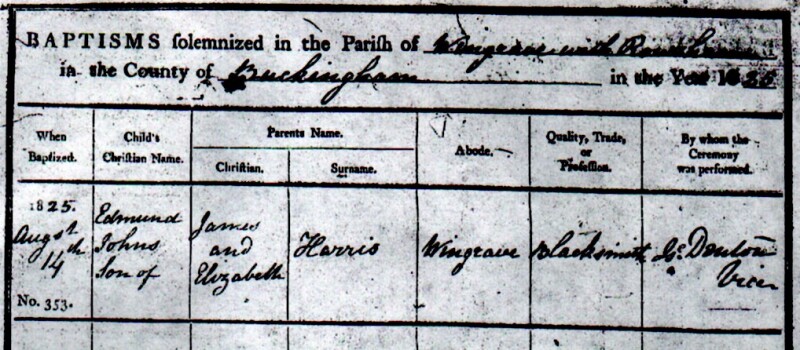 BAPTISMS solemnized in the Parish of Wingrave with Rowsham
in the County of Buckingham in the Year 1825
When Baptized.
Child's Christian Name.
Parents Name.
Christian.
Surname.
Abode.
Quality, Trade, or Profession.
By whom the Ceremony was performed.
1825.
Augst
14th
No. 353.
Edmund
Johns
Son of
James
and
Elizabeth
Harris
Wingrave
Blacksmith
Denton
Vicar